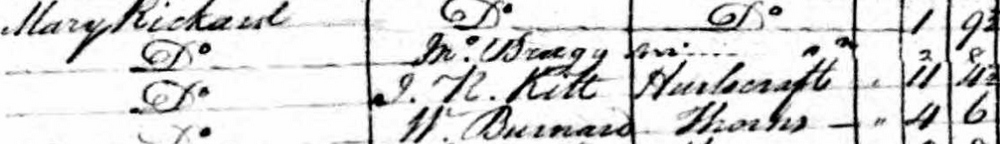 Mary Rickard Do Do 1 9½
Do Mr. Bragg
Do J. N. Kitt Hurlscraft " 11 4½
Do W. Burnard Thorns — " 4 6